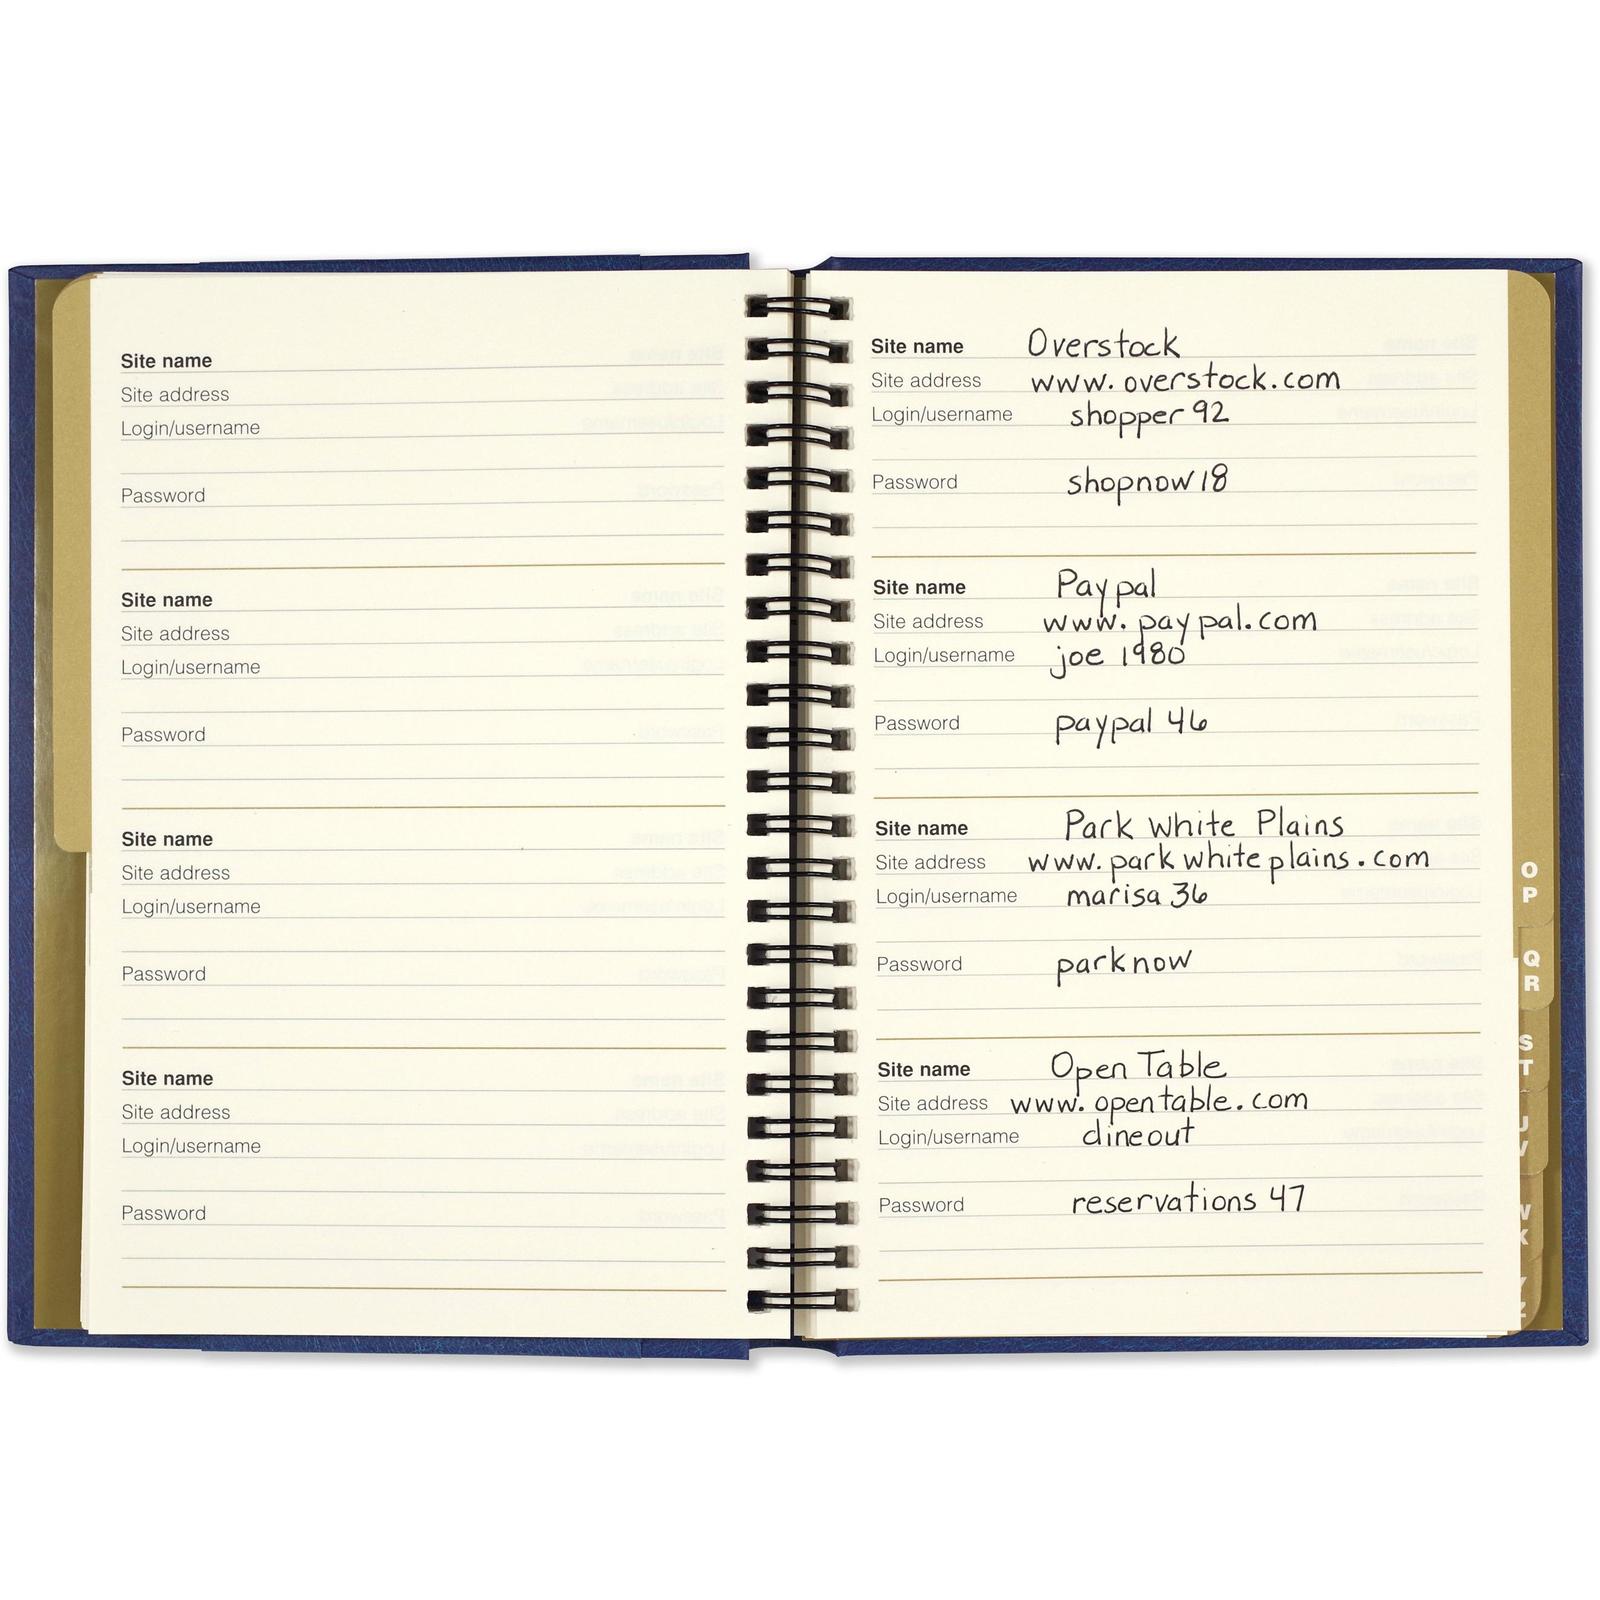 Site name
Site address
Login/username
Password
Site name
Site address
Login/username
Password
Site name
Site address
Login/username
Password
Site name
Site address
Login/username
Password
Site name Overstock
Site address www.overstock.com
Login/username shopper 92
Password shopnow18
Site name Paypal
Site address www.paypal.com
Login/username joe 1980
Password paypal 46
Site name Park White Plains
Site address www.parkwhiteplains.com
Login/username marisa 36
Password parknow
Site name Open Table
Site address www.opentable.com
Login/username dineout
Password reservations 47
O
P
Q
R
S
T